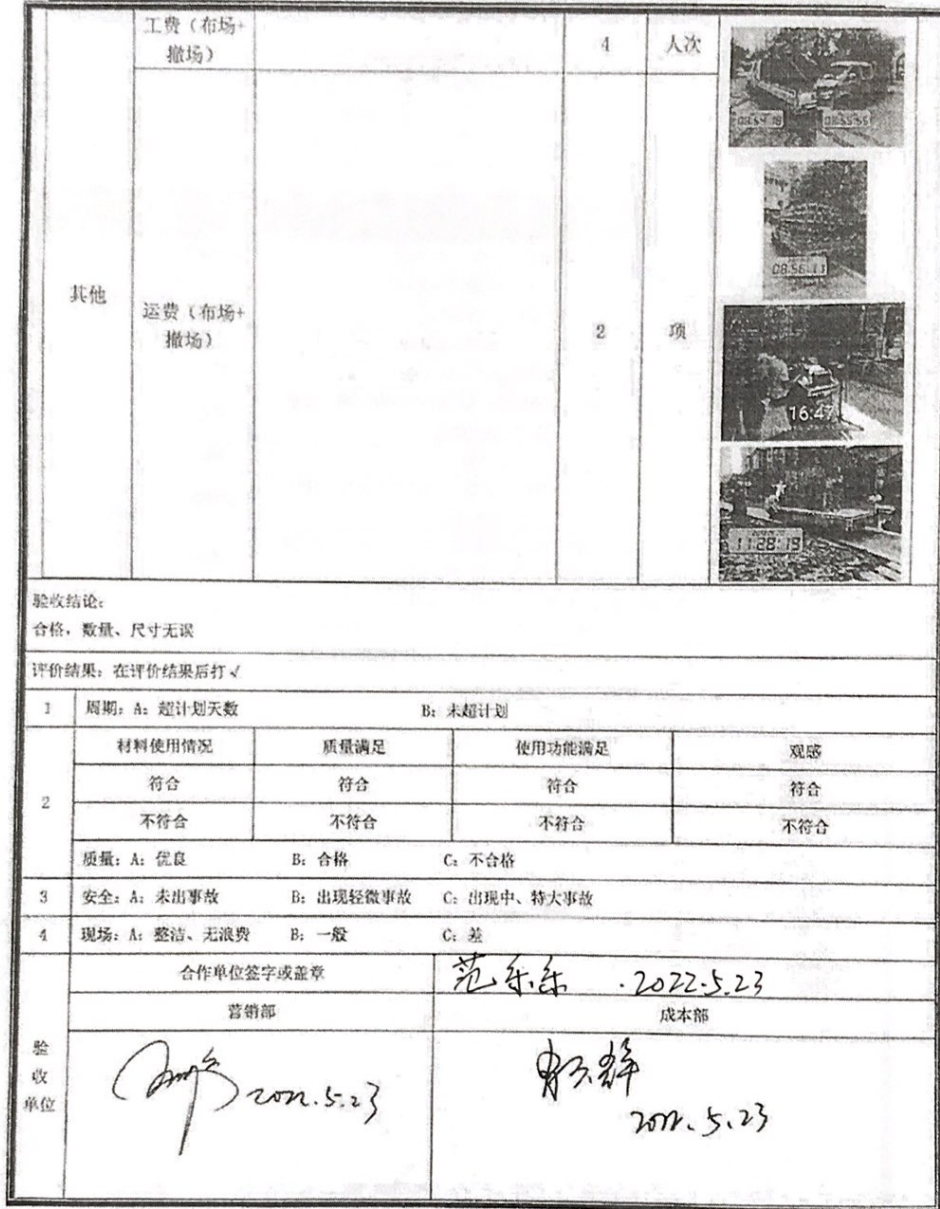 工费（布场+
撤场）
4
人次
08:55:55
08:56:11
其他
运费（布场+
撤场）
2
项
16:47
11:28:19
验收结论：
合格，数量、尺寸无误
评价结果：在评价结果后打√
1 周期：A：超计划天数 B：未超计划
材料使用情况 质量满足 使用功能满足 观感
符合 符合 符合 符合
2
不符合 不符合 不符合 不符合
质量：A：优良 B：合格 C：不合格
3 安全：A：未出事故 B：出现轻微事故 C：出现中、特大事故
4 现场：A：整洁、无浪费 B：一般 C：差
合作单位签字或盖章 范乐乐 .2022.5.23
营销部 成本部
验
收
单位
2022.5.23
2022.5.23